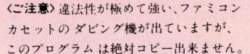 〈ご注意〉違法性が極めて強い、ファミコン
カセットの ダビング機が出ていますが、
このプログラム は絶対コピー出来ません